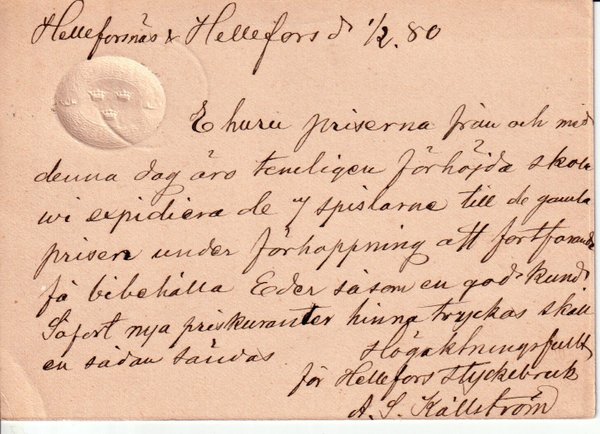 Helleforsnäs & Hellefors d 1/2. 80
Ehuru priserna från och med
denna dag äro temligen förhöjda skola
wi expidiera de 7 spislarne till de gamla
prisen under förhoppning att fortfarande
få bibehålla Eder såsom en god kund
Såfort nya priskuranter hinna tryckas skall
en sådan sändas. Högaktningsfullt
för Hellefors Styckebruk
A. S. Källström